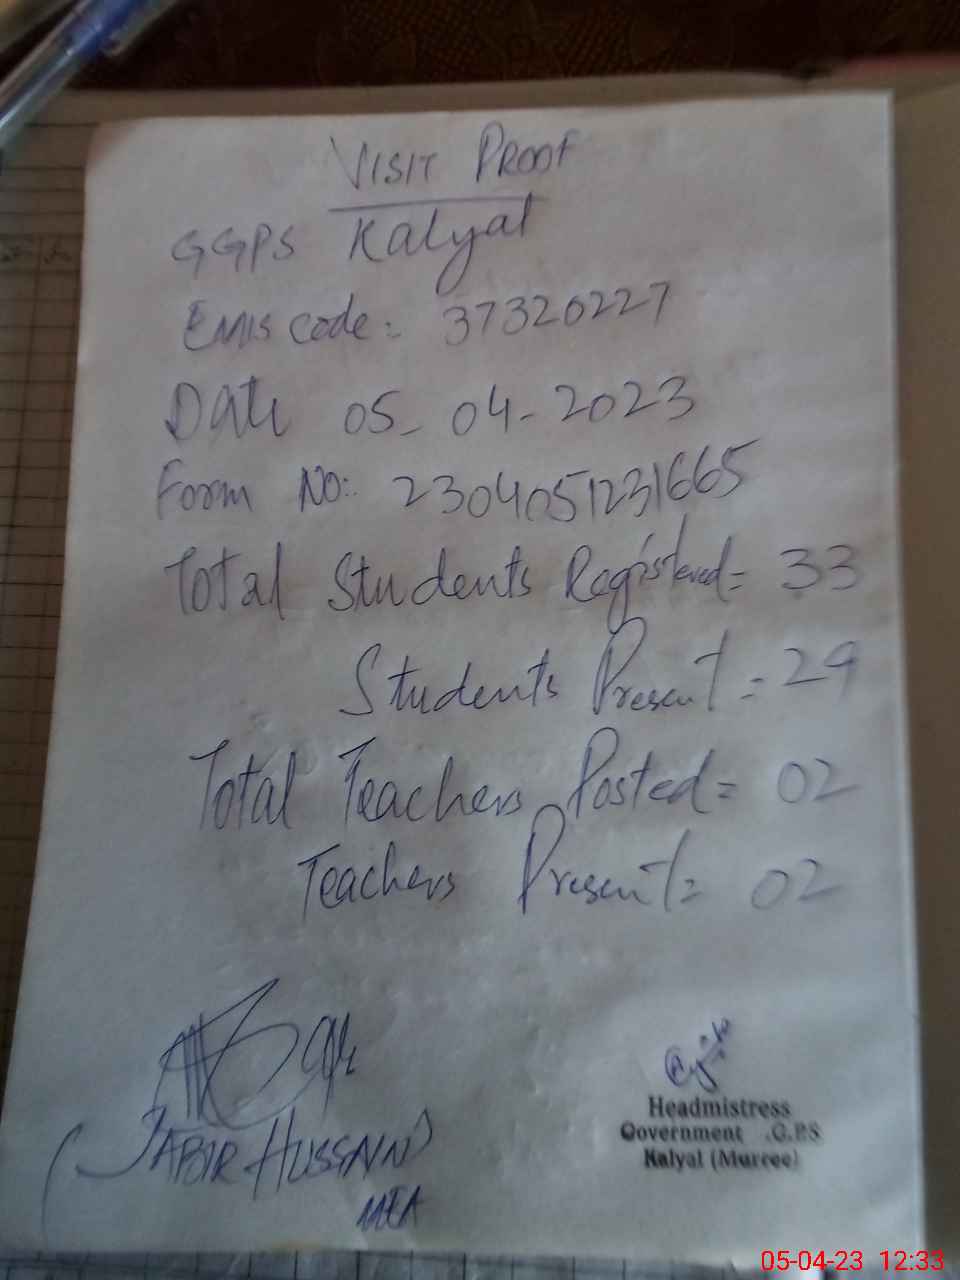 VISIT PROOF
GGPS Kalyal
EMIS code:- 37320227
Date 05-04-2023
Form No:- 2304051231665
Total Students Registered= 33
Students Present = 29
Total Teachers Posted= 02
Teachers Present= 02
(JABIR HUSSAIN)
MEA
Headmistress
Government .G.P.S
Kalyal (Murree)
05-04-23 12:33